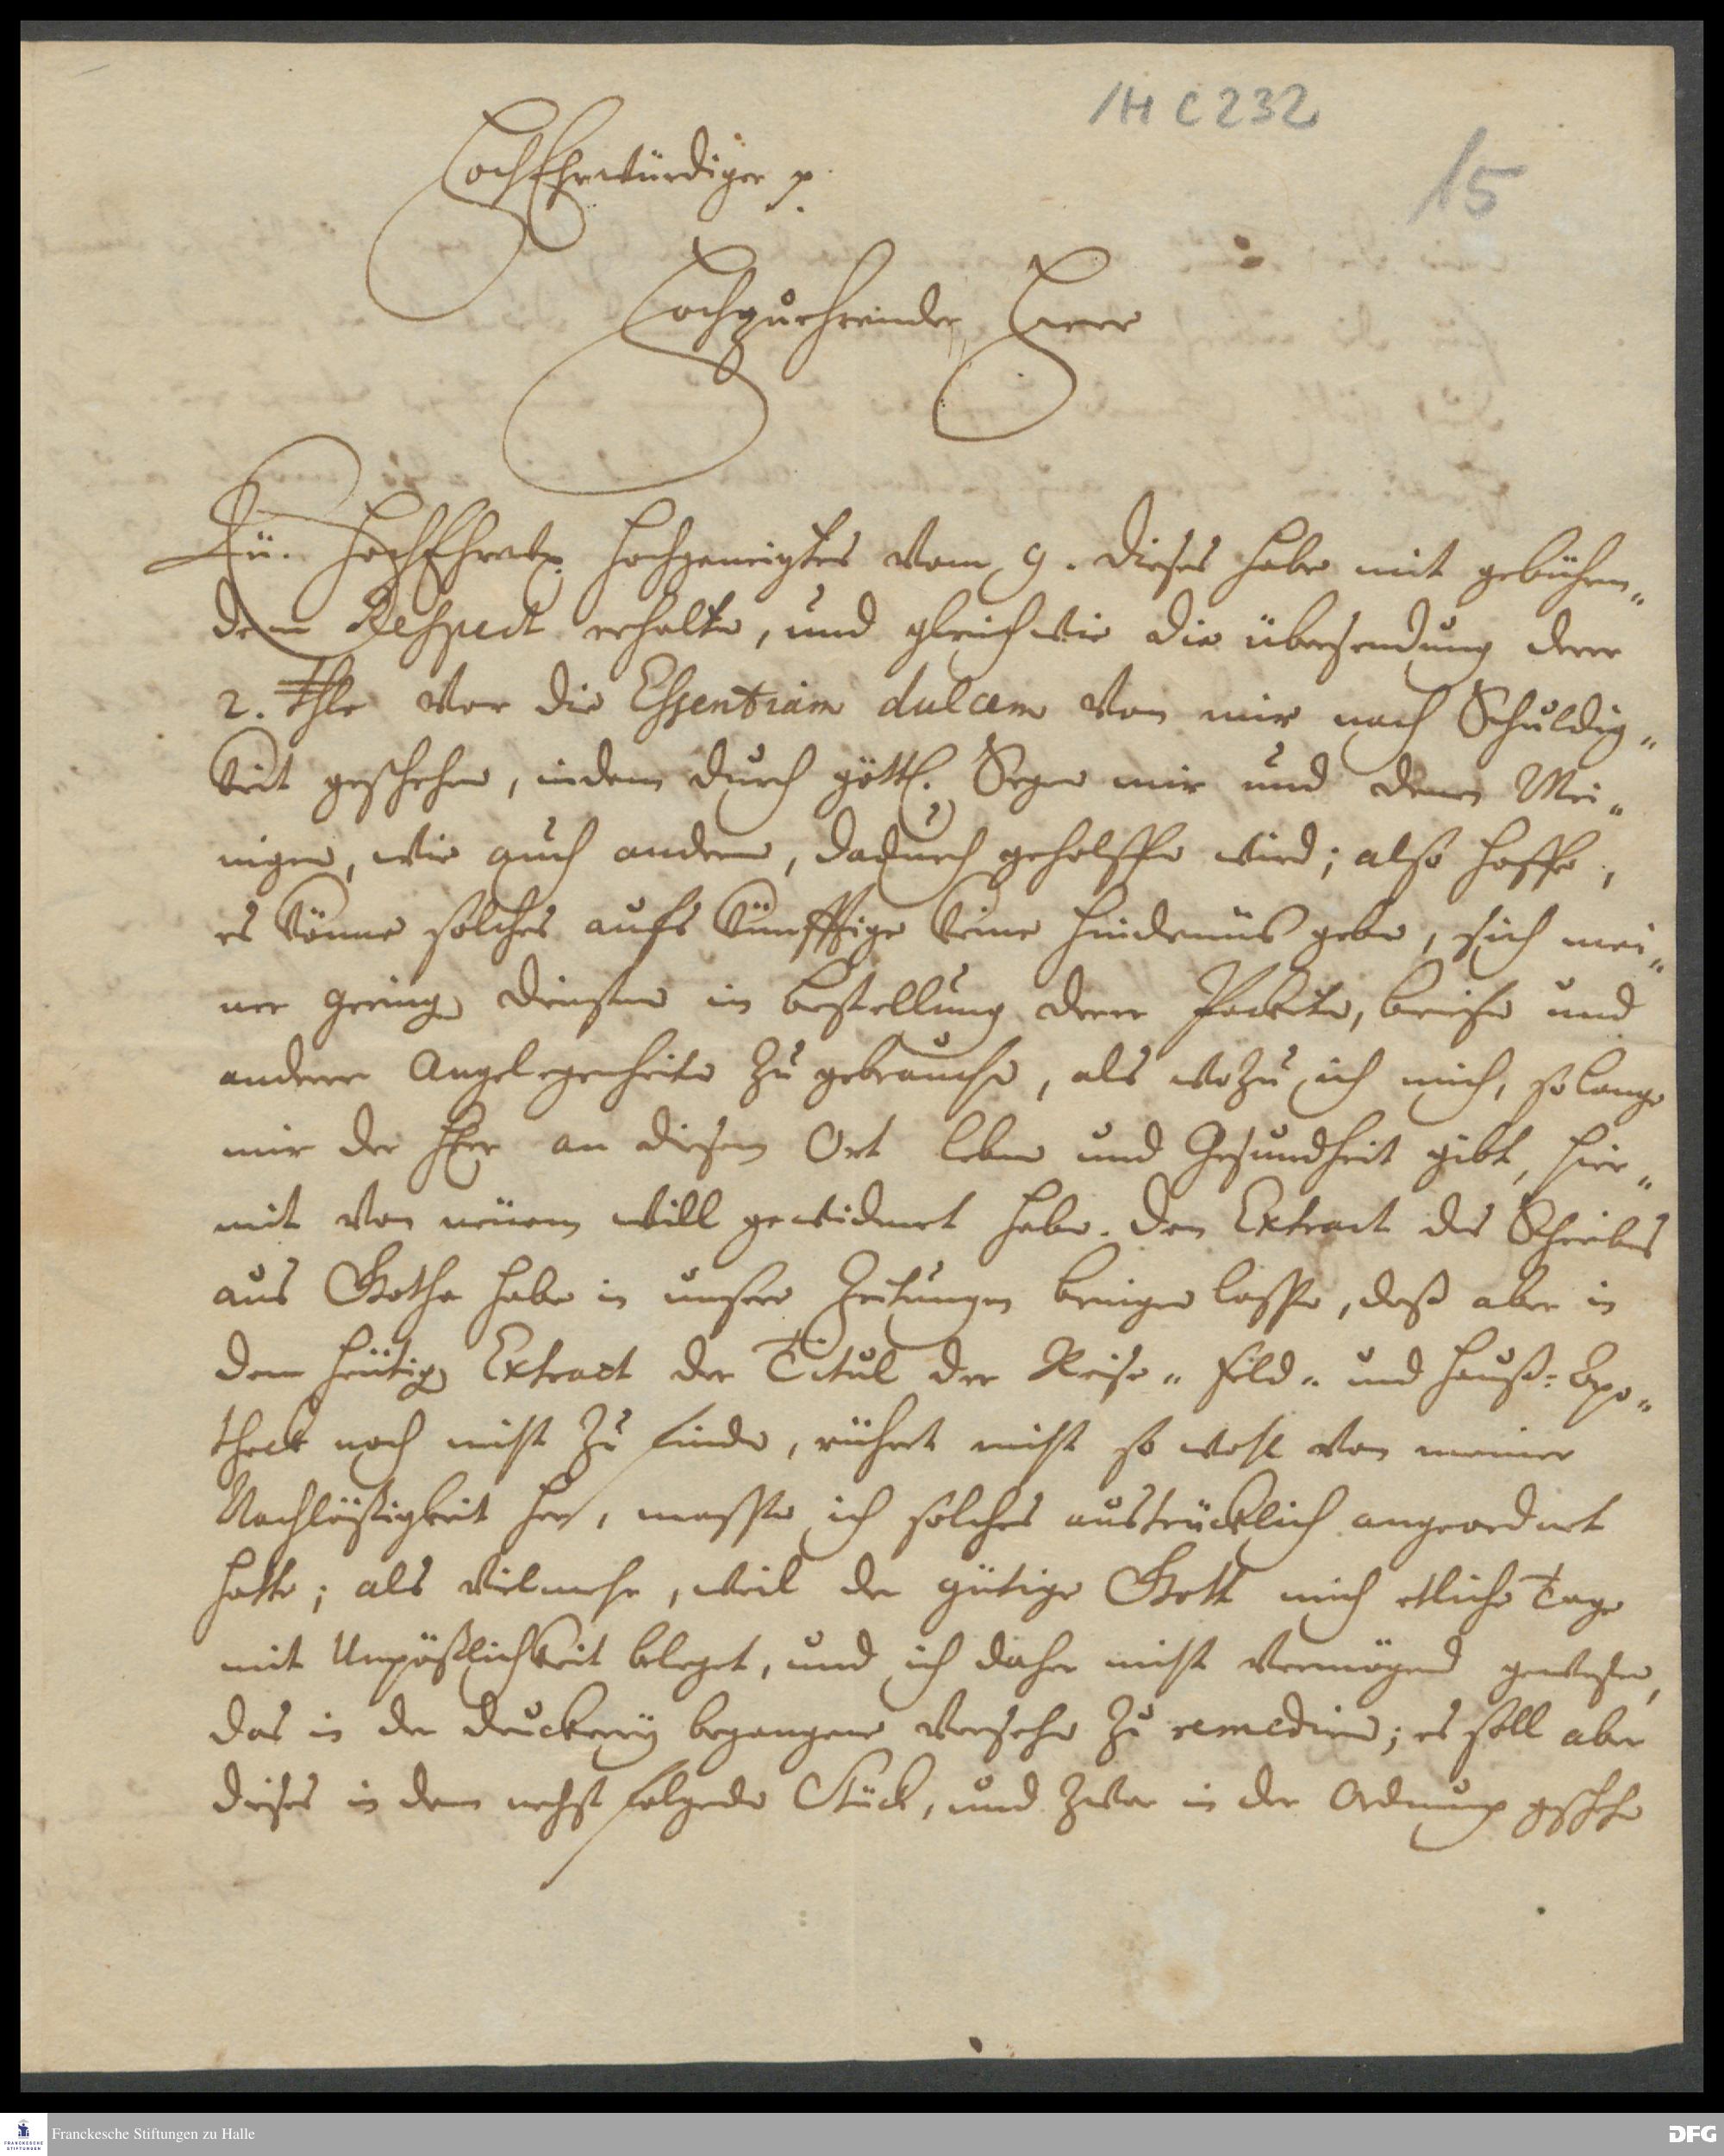 1H C 232
15
HochEhrwürdiger p.
Hochzuehrender Herr
Eü. HochEhrw. hochgeneigtes vom 9. dieses habe mit gebühren„
dem Respect erhalten, und gleichwie die übersendung derer
2. Thlr vor die Essentiam dulcem von mir nach Schuldig„
keit geschehen, indem durch göttl. Segen mir und denen Mei„
nigen, wie auch andern, dadurch geholffen wird; also hoffe,
es könne solches aufs künfftige keine Hindernüs geben, sich mei„
ner geringen Diensten in bestellung derer Packete, briefe und
anderer Angelegenheiten zu gebrauchen, als wozu ich mich, so lange
mir der HErr an diesem Ort leben und Gesundheit gibt, hier„
mit von neüem will gewidmet haben. Den Extract des Schreibens
aus Gotha habe in unsere Zeitungen bringen lassen, daß aber in
dem heütigen Extract der Titul der Reise„ Feld„ und Hauß-Apo„
theck noch nicht zu finden, rühret nicht so wohl von meiner
Nachläßigkeit her, massen ich solches austrücklich angeordnet
hatte; als vielmehr, weil der gütige Gott mich etliche Tage
mit Unpäßlichkeit beleget, und ich daher nicht vermögend gewesen,
das in der Druckerey begangene Versehen zu remediren; es soll aber
dieses in dem nechst folgenden Stück, und zwar in der Ordnung geschehen
Franckesche Stiftungen zu Halle
FRANCKESCHE STIFTUNGEN
DFG